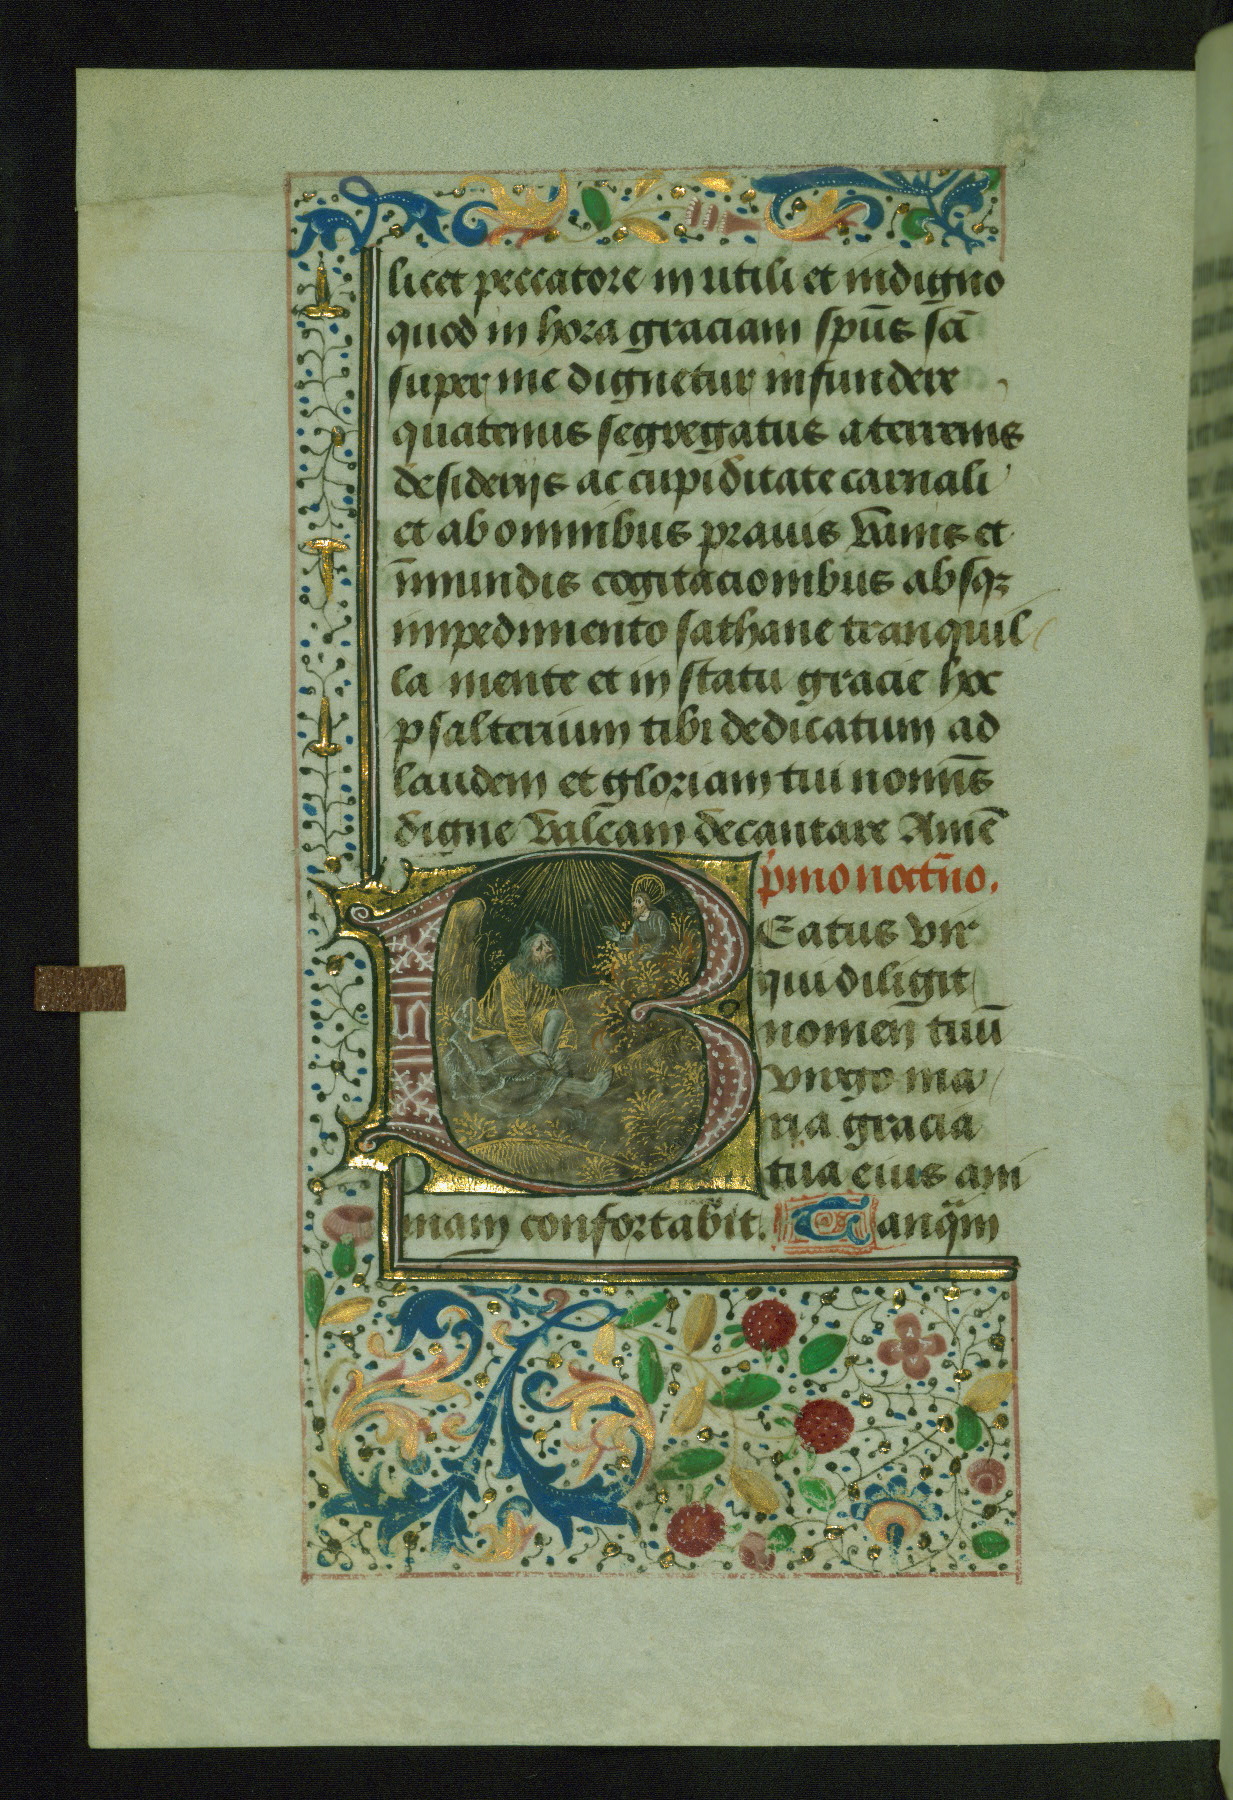 licet peccatore in utili et indigno
quod in hora graciam sp̄us sc̄i
super me dignetur infundere
quatenus segregatus a terrenis
desiderijs ac cupiditate carnali
et ab omnibus prauis vanis et
īmundis cogitacionibus absqꝫ
impedimento sathane tranquil
la mente et in statu gracie hoc
psalterium tibi dedicatum ad
laudem et gloriam tui nomīs
digne valeam decantare Amē
p̓mo noct̄no.
BEatus vir
qui diligit
nomen tuū
virgo ma
ria gracia
tua eius ani
mam confortabit. Tanq̄m